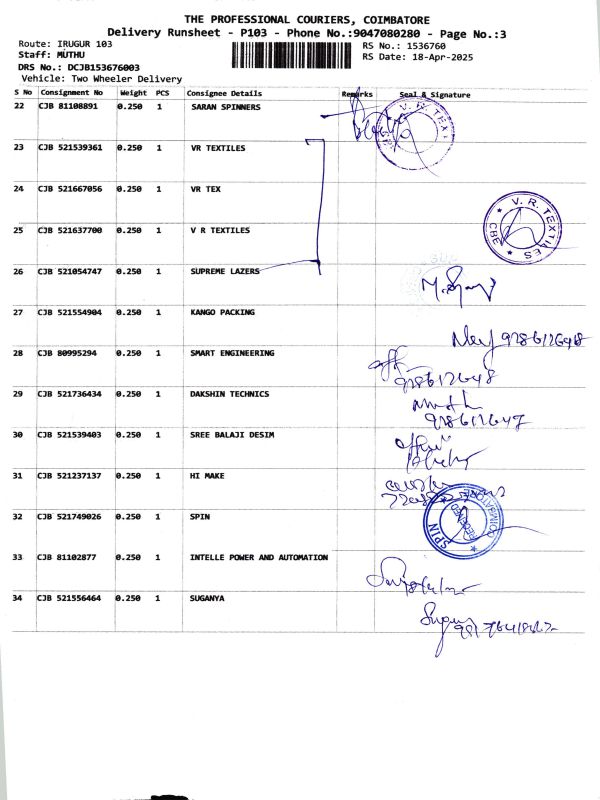 THE PROFESSIONAL COURIERS, COIMBATORE
Delivery Runsheet - P103 - Phone No.:9047080280 - Page No.:3
Route: IRUGUR 103
RS No.: 1536760
Staff: MUTHU
RS Date: 18-Apr-2025
DRS No.: DCJB153676003
Vehicle: Two Wheeler Delivery
S No Consignment No Weight PCS Consignee Details Remarks Seal & Signature
22 CJB 81108891 0.250 1 SARAN SPINNERS
V. R. TEXT
23 CJB 521539361 0.250 1 VR TEXTILES
24 CJB 521667056 0.250 1 VR TEX
V. R. TEXTILES
CBE
25 CJB 521637700 0.250 1 V R TEXTILES
26 CJB 521054747 0.250 1 SUPREME LAZERS
27 CJB 521554904 0.250 1 KANGO PACKING
28 CJB 80995294 0.250 1 SMART ENGINEERING
29 CJB 521736434 0.250 1 DAKSHIN TECHNICS
30 CJB 521539403 0.250 1 SREE BALAJI DESIM
31 CJB 521237137 0.250 1 HI MAKE
32 CJB 521749026 0.250 1 SPIN
SPIN
RECEIVED
33 CJB 81102877 0.250 1 INTELLE POWER AND AUTOMATION
34 CJB 521556464 0.250 1 SUGANYA